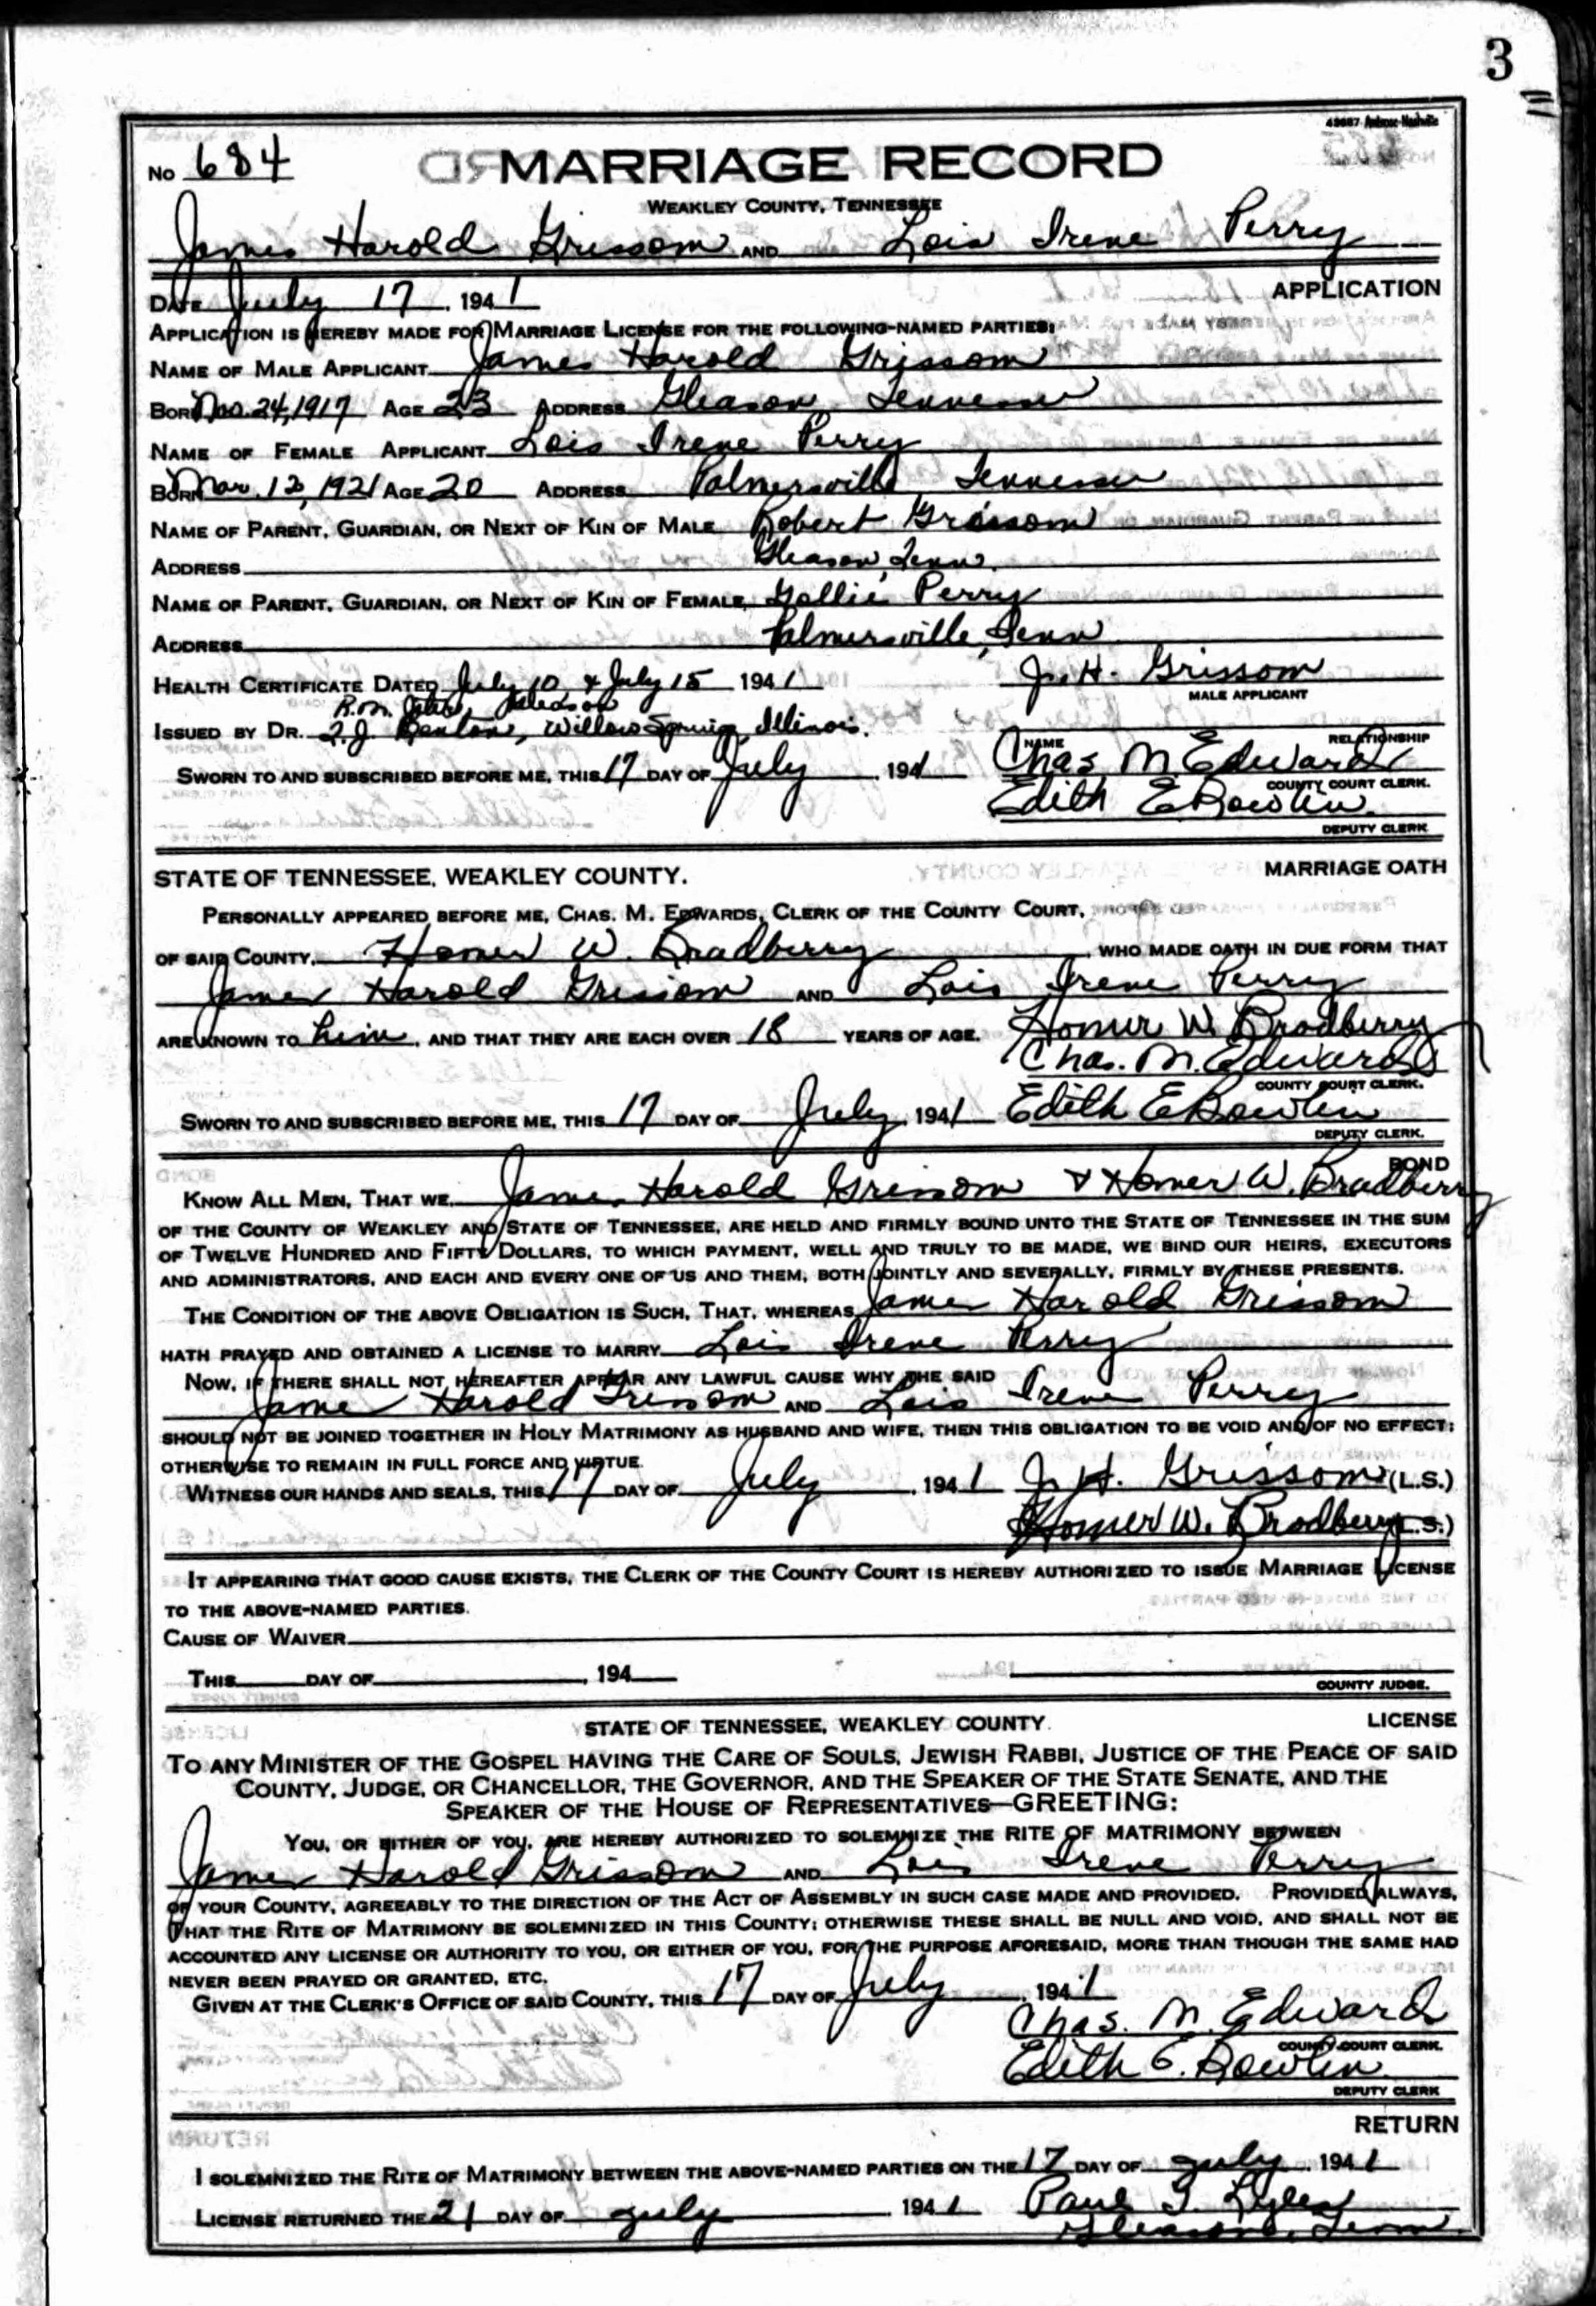 3
43687-Ambrose-Nashville
No 684 MARRIAGE RECORD
WEAKLEY COUNTY, TENNESSEE
James Harold Grissom AND Lois Irene Perry
DATE July 17 1941 APPLICATION
APPLICATION IS HEREBY MADE FOR MARRIAGE LICENSE FOR THE FOLLOWING-NAMED PARTIES:
NAME OF MALE APPLICANT James Harold Grissom
BORN 24, 1917 AGE 23 ADDRESS Gleason Tennessee
NAME OF FEMALE APPLICANT Lois Irene Perry
BORN Mar. 12, 1921 AGE 20 ADDRESS Palmersville, Tennessee
NAME OF PARENT, GUARDIAN, OR NEXT OF KIN OF MALE Robert Grissom
ADDRESS Gleason, Tenn.
NAME OF PARENT, GUARDIAN, OR NEXT OF KIN OF FEMALE, Gollie Perry
ADDRESS Palmersville, Tenn
HEALTH CERTIFICATE DATED July 10 & July 15 1941 J. H. Grissom
MALE APPLICANT
R.M. Gleason
ISSUED BY DR. T.J. Benton, Willow Springs, Illinois.
NAME RELATIONSHIP
SWORN TO AND SUBSCRIBED BEFORE ME, THIS 17 DAY OF July, 1941 Chas M. Edwards
COUNTY COURT CLERK.
Edith E Bowlin
DEPUTY CLERK
STATE OF TENNESSEE, WEAKLEY COUNTY. MARRIAGE OATH
PERSONALLY APPEARED BEFORE ME, CHAS. M. EDWARDS, CLERK OF THE COUNTY COURT,
OF SAID COUNTY, Homer W. Bradberry, WHO MADE OATH IN DUE FORM THAT
James Harold Grissom AND Lois Irene Perry
ARE KNOWN TO him, AND THAT THEY ARE EACH OVER 18 YEARS OF AGE. Homer W. Bradberry
Chas. M. Edwards
COUNTY COURT CLERK.
SWORN TO AND SUBSCRIBED BEFORE ME, THIS 17 DAY OF July, 1941 Edith E Bowlin
DEPUTY CLERK.
BOND
KNOW ALL MEN, THAT WE, James Harold Grissom & Homer W. Bradberry
OF THE COUNTY OF WEAKLEY AND STATE OF TENNESSEE, ARE HELD AND FIRMLY BOUND UNTO THE STATE OF TENNESSEE IN THE SUM
OF TWELVE HUNDRED AND FIFTY DOLLARS, TO WHICH PAYMENT, WELL AND TRULY TO BE MADE, WE BIND OUR HEIRS, EXECUTORS
AND ADMINISTRATORS, AND EACH AND EVERY ONE OF US AND THEM, BOTH JOINTLY AND SEVERALLY, FIRMLY BY THESE PRESENTS.
THE CONDITION OF THE ABOVE OBLIGATION IS SUCH, THAT, WHEREAS James Harold Grissom
HATH PRAYED AND OBTAINED A LICENSE TO MARRY Lois Irene Perry
NOW, IF THERE SHALL NOT HEREAFTER APPEAR ANY LAWFUL CAUSE WHY THE SAID
James Harold Grissom AND Lois Irene Perry
SHOULD NOT BE JOINED TOGETHER IN HOLY MATRIMONY AS HUSBAND AND WIFE, THEN THIS OBLIGATION TO BE VOID AND OF NO EFFECT;
OTHERWISE TO REMAIN IN FULL FORCE AND VIRTUE.
WITNESS OUR HANDS AND SEALS, THIS 17 DAY OF July, 1941 J. H. Grissom (L.S.)
Homer W. Bradberry (L.S.)
IT APPEARING THAT GOOD CAUSE EXISTS, THE CLERK OF THE COUNTY COURT IS HEREBY AUTHORIZED TO ISSUE MARRIAGE LICENSE
TO THE ABOVE-NAMED PARTIES.
CAUSE OF WAIVER
THIS DAY OF , 194
COUNTY JUDGE.
STATE OF TENNESSEE, WEAKLEY COUNTY. LICENSE
TO ANY MINISTER OF THE GOSPEL HAVING THE CARE OF SOULS, JEWISH RABBI, JUSTICE OF THE PEACE OF SAID
COUNTY, JUDGE, OR CHANCELLOR, THE GOVERNOR, AND THE SPEAKER OF THE STATE SENATE, AND THE
SPEAKER OF THE HOUSE OF REPRESENTATIVES—GREETING:
YOU, OR EITHER OF YOU, ARE HEREBY AUTHORIZED TO SOLEMNIZE THE RITE OF MATRIMONY BETWEEN
James Harold Grissom AND Lois Irene Perry
OF YOUR COUNTY, AGREEABLY TO THE DIRECTION OF THE ACT OF ASSEMBLY IN SUCH CASE MADE AND PROVIDED. PROVIDED ALWAYS,
THAT THE RITE OF MATRIMONY BE SOLEMNIZED IN THIS COUNTY; OTHERWISE THESE SHALL BE NULL AND VOID, AND SHALL NOT BE
ACCOUNTED ANY LICENSE OR AUTHORITY TO YOU, OR EITHER OF YOU, FOR THE PURPOSE AFORESAID, MORE THAN THOUGH THE SAME HAD
NEVER BEEN PRAYED OR GRANTED, ETC.
GIVEN AT THE CLERK'S OFFICE OF SAID COUNTY, THIS 17 DAY OF July, 1941
Chas. M. Edwards
COUNTY COURT CLERK.
Edith E. Bowlin
DEPUTY CLERK
RETURN
I SOLEMNIZED THE RITE OF MATRIMONY BETWEEN THE ABOVE-NAMED PARTIES ON THE 17 DAY OF July 1941
LICENSE RETURNED THE 21 DAY OF July 1941 Paul T. Lyles
Gleason, Tenn.